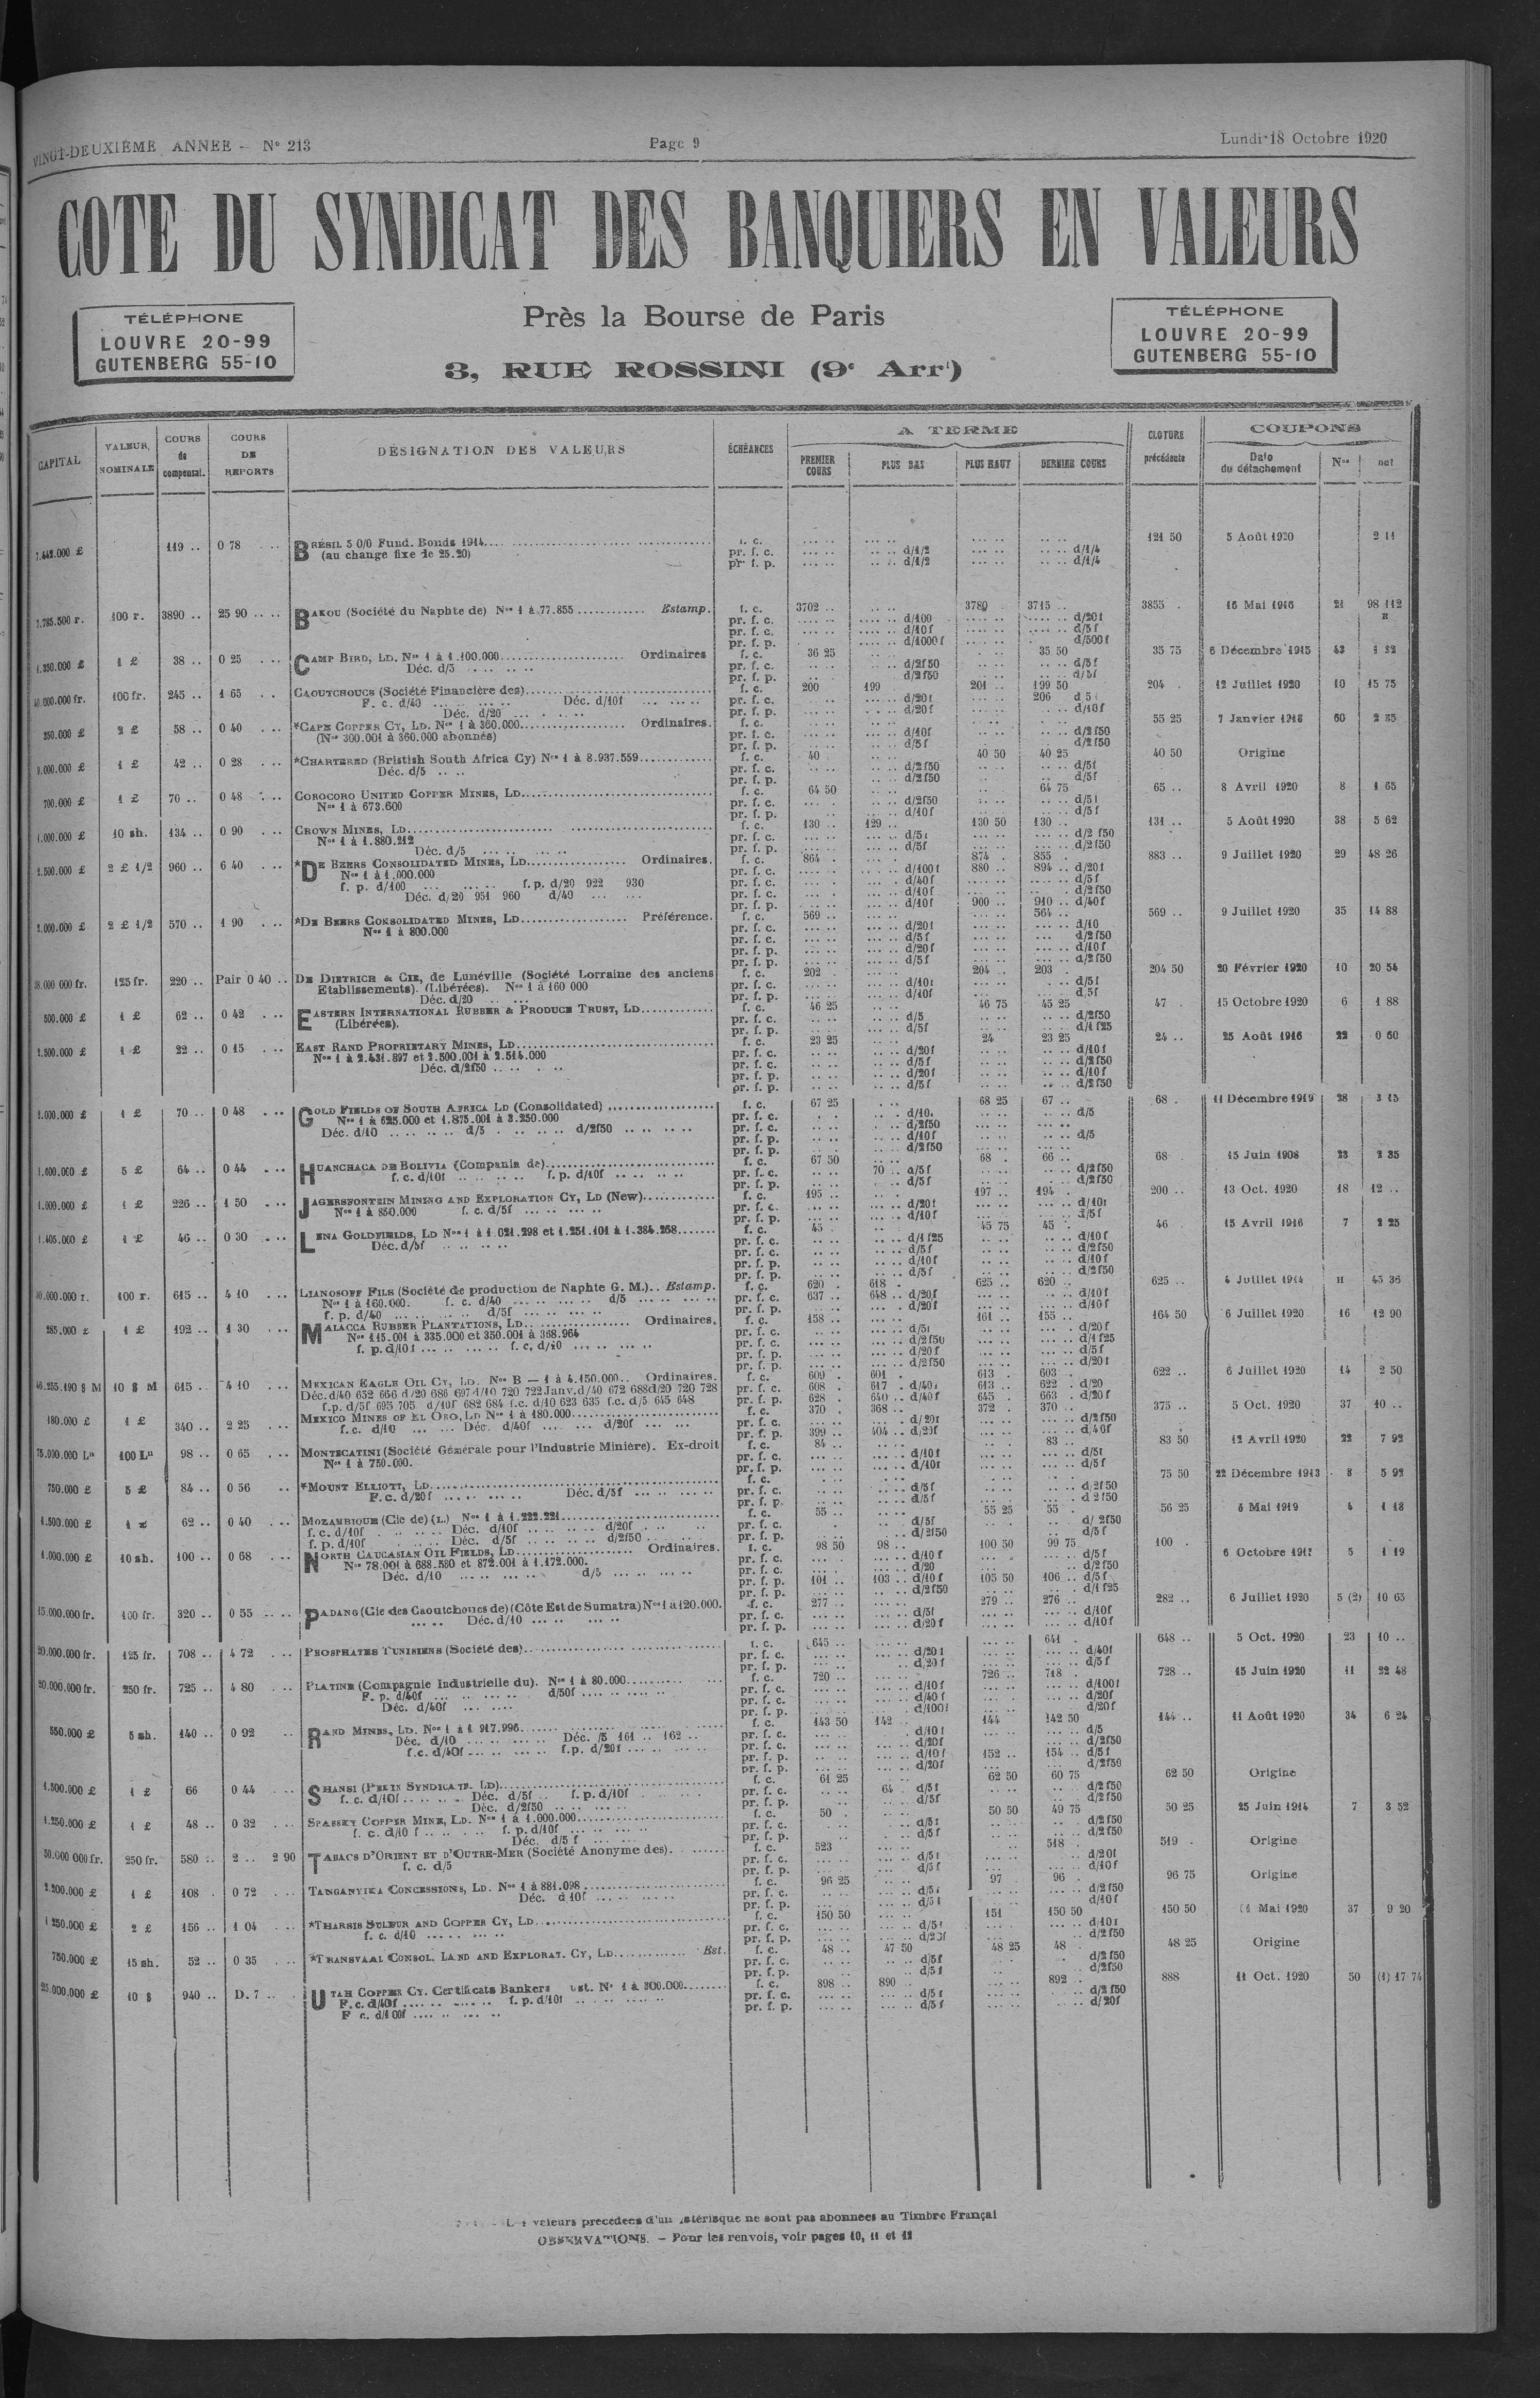 VINGT-DEUXIÈME ANNEE - N° 213
Page 9
Lundi 18 Octobre 1920
COTE DU SYNDICAT DES BANQUIERS EN VALEURS
TÉLÉPHONE
LOUVRE 20-99
GUTENBERG 55-10
Près la Bourse de Paris
3, RUE ROSSINI (9e Arrt)
TÉLÉPHONE
LOUVRE 20-99
GUTENBERG 55-10
CAPITAL
VALEUR NOMINALE
COURS de compensat.
COURS DE REPORTS
DÉSIGNATION DES VALEURS
ÉCHÉANCES
A TERME
PREMIER COURS
PLUS BAS
PLUS HAUT
DERNIER COURS
CLOTURE précédente
COUPONS
Date du détachement
Nos
net
7.442.000 £ 119 .. 0 78 BRÉSIL 5 0/0 Fund. Bonds 1914 f. c. 121 50 5 Août 1920 2 11
(au change fixe de 25.20) pr. f. c. d/1/2 d/1/4
pr. f. p. d/1/2 d/1/4
7.785.500 r. 100 r. 3890 .. 25 90 BAKOU (Société du Naphte de) Nos 1 à 77.855 Estamp. f. c. 3702 .. 3780 3715 .. 3855 16 Mai 1916 21 98 112
pr. f. c. d/100 d/20f
pr. f. c. d/10f d/5f
pr. f. p. d/1000f d/500f
1.350.000 £ 1 £ 38 .. 0 25 CAMP BIRD, LD. Nos 1 à 1.100.000 Ordinaires f. c. 36 25 35 50 35 75 6 Décembre 1915 43 1 32
Déc. d/5 pr. f. c. d/2f50 d/5f
pr. f. p. d/2f50 d/5f
40.000.000 fr. 100 fr. 245 .. 1 65 CAOUTCHOUCS (Société Financière des) f. c. 200 199 201 .. 199 50 204 12 Juillet 1920 10 15 75
F. c. d/40 Déc. d/10f pr. f. c. d/20f 206 d 5
Déc. d/20 pr. f. p. d/20f d/10f
350.000 £ 2 £ 58 .. 0 40 *CAPE COPPER CY, LD. Nos 1 à 360.000 Ordinaires. f. c. 55 25 7 Janvier 1918 60 2 35
(Nos 300.001 à 360.000 abonnés) pr. f. c. d/10f d/2f50
pr. f. p. d/5f d/2f50
9.000.000 £ 1 £ 42 .. 0 28 *CHARTERED (Bristish South Africa Cy) Nos 1 à 8.937.559 f. c. 40 40 50 40 25 40 50 Origine
Déc. d/5 pr. f. c. d/2f50 d/5f
pr. f. p. d/2f50 d/5f
700.000 £ 1 £ 70 .. 0 48 COROCORO UNITED COPPER MINES, LD. f. c. 64 50 64 75 65 .. 8 Avril 1920 8 1 65
Nos 1 à 673.600 pr. f. c. d/2f50 d/5f
pr. f. p. d/10f d/5f
1.000.000 £ 10 sh. 134 .. 0 90 CROWN MINES, LD. f. c. 130 .. 129 .. 130 50 130 .. 131 .. 5 Août 1920 38 5 62
Nos 1 à 1.880.212 pr. f. c. d/5f d/2f50
Déc. d/5 pr. f. p. d/5f d/2f50
2.500.000 £ 2 £ 1/2 960 .. 6 40 *DE BEERS CONSOLIDATED MINES, LD. Ordinaires. f. c. 864 874 855 883 .. 9 Juillet 1920 29 48 26
Nos 1 à 1.000.000 pr. f. c. d/100f 880 .. 894 .. d/20f
f. p. d/100 f.p. d/20 922 930 pr. f. c. d/40f d/5f
Déc. d/20 951 960 d/40 pr. f. c. d/10f d/2f50
pr. f. p. d/10f 900 .. 910 .. d/40f
2.000.000 £ 2 £ 1/2 570 .. 1 90 *DE BEERS CONSOLIDATED MINES, LD. Préférence. f. c. 569 .. 564 .. 569 .. 9 Juillet 1920 35 14 88
Nos 1 à 800.000 pr. f. c. d/20f d/10
pr. f. c. d/5f d/2f50
pr. f. p. d/20f d/10f
pr. f. p. d/5f d/2f50
38.000 000 fr. 125 fr. 220 .. Pair 0 40 .. DE DIETRICH & CIE, de Lunéville (Société Lorraine des anciens f. c. 202 204 .. 203 204 50 20 Février 1920 10 20 54
Etablissements). (Libérées). Nos 1 à 160 000 pr. f. c. d/10f d/5f
Déc. d/20 pr. f. p. d/10f d/5f
500.000 £ 1 £ 62 .. 0 42 EASTERN INTERNATIONAL RUBBER & PRODUCE TRUST, LD. f. c. 46 25 46 75 45 25 47 15 Octobre 1920 6 1 88
(Libérées). pr. f. c. d/5 d/2f50
pr. f. p. d/5f d/1f25
2.500.000 £ 1 £ 22 .. 0 15 EAST RAND PROPRIETARY MINES, LD. f. c. 23 25 24 23 25 24 .. 25 Août 1916 22 0 60
Nos 1 à 2.431.897 et 2.500.001 à 2.514.000 pr. f. c. d/20f d/10f
Déc. d/2f50 pr. f. c. d/5f d/2f50
pr. f. p. d/20f d/10f
pr. f. p. d/5f d/2f50
2.000.000 £ 1 £ 70 .. 0 48 GOLD FIELDS OF SOUTH AFRICA LD (Consolidated) f. c. 67 25 68 25 67 .. 68 11 Décembre 1919 28 3 15
Nos 1 à 625.000 et 1.875.001 à 3.250.000 pr. f. c. d/10. d/5
Déc. d/10 d/5 d/2f50 pr. f. c. d/2f50
pr. f. p. d/10f d/5
pr. f. p. d/2f50
1.600.000 £ 5 £ 64 .. 0 44 HUANCHACA DE BOLIVIA (Compania de) f. c. 67 50 68 66 .. 68 15 Juin 1908 23 2 35
f. c. d/10f f. p. d/10f pr. f. c. 70 .. d/5f d/2f50
pr. f. p. d/5f d/2f50
1.000.000 £ 1 £ 226 .. 1 50 JAGERSFONTEIN MINING AND EXPLORATION CY, LD (New) f. c. 195 .. 197 .. 194 200 .. 13 Oct. 1920 18 12 ..
Nos 1 à 850.000 f. c. d/5f pr. f. c. d/20f d/10f
pr. f. p. d/10f d/5f
1.405.000 £ 1 £ 46 .. 0 30 LENA GOLDFIELDS, LD Nos 1 à 1.021.298 et 1.251.101 à 1.384.268 f. c. 45 45 75 45 46 15 Avril 1916 7 2 25
Déc. d/5f pr. f. c. d/1f25 d/10f
pr. f. c. d/5f d/2f50
pr. f. p. d/10f d/10f
pr. f. p. d/5f d/2f50
100 r. 615 .. 4 10 LIANOSOFF FILS (Société de production de Naphte G. M.) Estamp. f. c. 620 618 625 .. 620 .. 625 .. 4 Juillet 1914 11 45 36
Nos 1 à 160.000. f. c. d/40 d/5 pr. f. c. 637 .. 648 .. d/20f d/10f
f. p. d/40 d/5f pr. f. p. d/20f d/10f
285.000 £ 1 £ 192 .. 1 30 MALACCA RUBBER PLANTATIONS, LD. Ordinaires. f. c. 158 .. 161 .. 155 .. 164 50 6 Juillet 1920 16 12 90
Nos 115.001 à 335.000 et 350.001 à 368.964 pr. f. c. d/5f d/20f
f. p. d/10f f. c. d/10 pr. f. c. d/2f50 d/1f25
pr. f. p. d/20f d/5f
pr. f. p. d/2f50 d/20f
46.255.190 $ M 10 $ M 615 .. 4 10 MEXICAN EAGLE OIL CY, LD. Nos B — 1 à 4.150.000 Ordinaires. f. c. 609 601 613 603 622 .. 6 Juillet 1920 14 2 50
Déc. d/40 652 666 d/20 686 697 d/10 720 722 Janv. d/40 672 688 d/20 720 728 pr. f. c. 608 617 d/40f 613 .. 622 d/20
f.p. d/5f 695 705 d/10f 682 684 f.c. d/10 623 635 f.c. d/5 645 648 pr. f. p. 628 640 .. d/40f 645 663 d/20f
180.000 £ 1 £ 340 .. 2 25 MEXICO MINES OF EL ORO, LD Nos 1 à 180.000 f. c. 370 368 .. 372 370 .. 375 .. 5 Oct. 1920 37 10 ..
f. c. d/10 Déc. d/40f d/20f pr. f. c. d/20f d/2f50
pr. f. p. 399 .. 404 .. d/20f d/40f
75.000.000 Ls 100 Ls 98 .. 0 65 MONTECATINI (Société Générale pour l'Industrie Minière). Ex-droit f. c. 84 .. 83 .. 83 50 12 Avril 1920 22 7 92
Nos 1 à 750.000. pr. f. c. d/10f d/5f
pr. f. p. d/10f d/5f
750.000 £ 5 £ 84 .. 0 56 *MOUNT ELLIOTT, LD. f. c. 75 50 22 Décembre 1913 8 5 92
F. c. d/20f Déc. d/5f pr. f. c. d/5f d/2f50
pr. f. p. d/5f d/2f50
1.500.000 £ 62 .. 0 40 MOZAMBIQUE (Cie de) (L.) Nos 1 à 1.222.221 f. c. 55 .. 55 25 55 56 25 Mai 1919 4 1 18
f. c. d/10f Déc. d/10f d/20f pr. f. c. d/5f d/2f50
f. p. d/10f Déc. d/5f d/2f50 pr. f. p. d/2f50 d/5f
1.000.000 £ 10 sh. 100 .. 0 68 NORTH CAUCASIAN OIL FIELDS, LD. Ordinaires. f. c. 98 50 98 .. 100 50 99 75 100 6 Octobre 5 1 19
Nos 78.001 à 688.580 et 872.001 à 1.172.000. pr. f. c. d/10f d/5f
Déc. d/10 d/5 pr. f. c. d/20 d/2f50
pr. f. p. 101 .. 103 .. d/10f 105 50 106 .. d/5f
pr. f. p. d/2f50 d/1f25
15.000.000 fr. 100 fr. 320 .. 0 55 PADANG (Cie des Caoutchoucs de) (Côte Est de Sumatra) Nos 1 à 120.000. f. c. 277 .. 279 .. 276 .. 282 .. 6 Juillet 1920 5 (2) 10 65
Déc. d/10 pr. f. c. d/5f d/10f
pr. f. p. d/20f d/10f
20.000.000 fr. 125 fr. 708 .. 4 72 PHOSPHATES TUNISIENS (Société des) f. c. 645 .. 641 648 .. 5 Oct. 1920 23 10 ..
pr. f. c. d/20f d/40f
pr. f. p. d/20f d/5f
20.000.000 fr. 250 fr. 725 .. 4 80 PLATINE (Compagnie Industrielle du). Nos 1 à 80.000 f. c. 720 .. 726 .. 718 728 .. 15 Juin 1920 11 22 48
F. p. d/40f d/50f pr. f. c. d/10f d/100f
Déc. d/40f pr. f. c. d/40f d/20f
pr. f. p. d/100f d/20f
550.000 £ 5 sh. 140 .. 0 92 RAND MINES, LD. Nos 1 à 1 917.996 f. c. 143 50 142 .. 144 142 50 144 .. 11 Août 1920 34 6 24
Déc. d/10 Déc. /5 161 .. 162 .. pr. f. c. d/10f d/5
f.c. d/40f f.p. d/20f pr. f. c. d/20f d/2f50
pr. f. p. d/10f 152 .. 154 .. d/5f
pr. f. p. d/20f d/2f50
1.500.000 £ 1 £ 66 0 44 SHANSI (PEKIN SYNDICATE. LD) f. c. 61 25 62 50 60 75 62 50 Origine
f. c. d/10f Déc. d/5f f. p. d/10f pr. f. c. 64 d/5f d/2f50
Déc. d/2f50 pr. f. p. d/5f d/2f50
1.250.000 £ 1 £ 48 .. 0 32 SPASSKY COPPER MINE, LD. Nos 1 à 1.000.000 f. c. 50 50 50 49 75 50 25 25 Juin 1914 7 3 52
f. c. d/10 f f. p. d/10f pr. f. c. d/5f d/2f50
Déc. d/5 f pr. f. p. d/5f d/2f50
30.000 000 fr. 250 fr. 580 .. 2 .. 2 90 TABACS D'ORIENT ET D'OUTRE-MER (Société Anonyme des). f. c. 523 518 519 Origine
f. c. d/5 pr. f. c. d/5f d/20f
pr. f. p. d/5f d/10f
2.200.000 £ 1 £ 108 0 72 TANGANYIKA CONCESSIONS, LD. Nos 1 à 881.098 f. c. 96 25 97 96 96 75 Origine
Déc. d 10f pr. f. c. d/5f d/2f50
pr. f. p. d/5f d/10f
1 250.000 £ 2 £ 156 .. 1 04 *THARSIS SULFUR AND COPPER CY, LD. f. c. 150 50 151 150 50 150 50 Mai 1920 37 9 20
f. c. d/10 pr. f. c. d/5f d/10f
pr. f. p. d/20f d/2f50
750.000 £ 15 sh. 52 .. 0 35 *TRANSVAAL CONSOL. LAND AND EXPLORAT. CY, LD Est. f. c. 48 .. 47 50 48 25 48 48 25 Origine
pr. f. c. d/5f d/2f50
pr. f. p. d/5f d/2f50
25.000.000 £ 10 $ 940 .. D. 7 .. UTAH COPPER CY. Certificats Bankers st. N° 1 à 300.000 f. c. 898 .. 890 892 .. 888 11 Oct. 1920 50 (1) 17 74
F. c. d/40f f. p. d/10f pr. f. c. d/5f d/2f50
F c. d/100f pr. f. p. d/5f d/20f
valeurs précédées d'un astérisque ne sont pas abonnées au Timbre Françai
OBSERVATIONS. — Pour les renvois, voir pages 10, 11 et 12